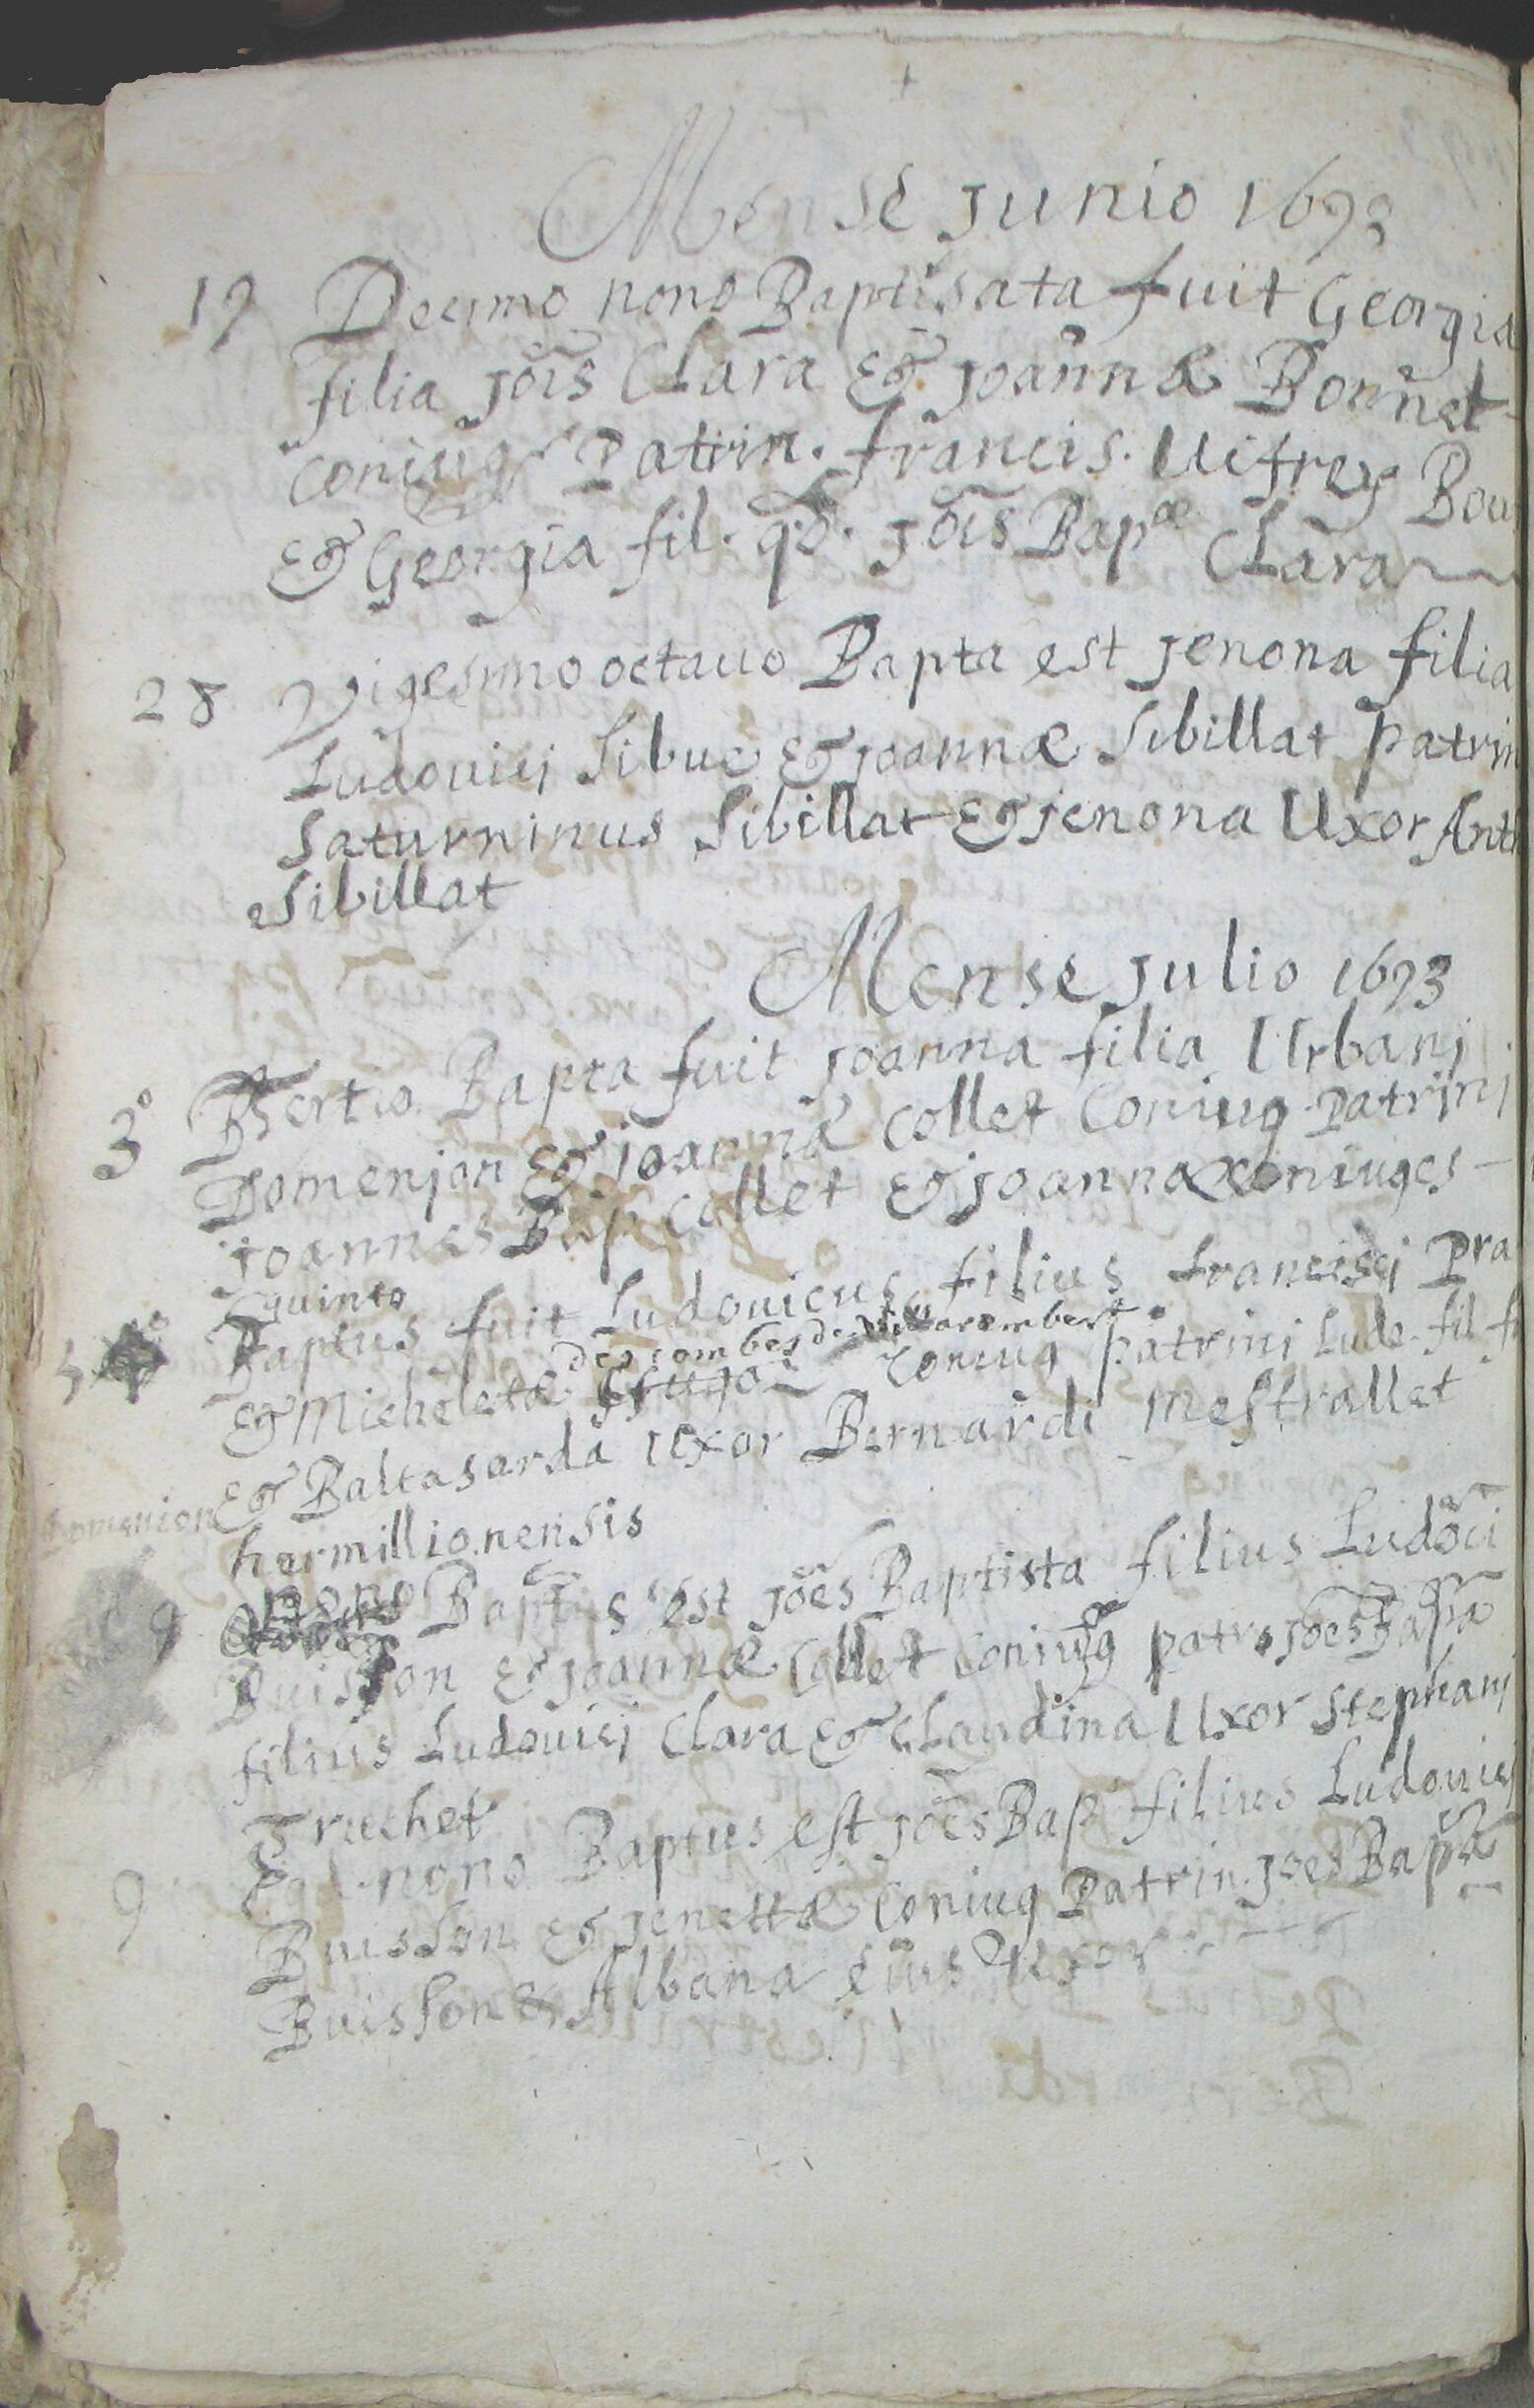 Mense Junio 1693
19 Decimo nono Baptisata fuit Georgia
filia jões Clara & joannæ Bonnet
coniug Patrin. francis. Uifrey Bou
& Georgia fil. qd. jõis Bapæ Clara
28 Vigesimo octauo Bapta est jenona filia
Ludouici Sibue & joannæ Sibillat patrin
Saturninus Sibillat & jenona Uxor Ant
Sibillat
Mense Julio 1693
3º Tertio Bapta fuit joanna filia Urbanj
Domenjon & joannæ collet Coniug Patrinj
joannes Bap collet & joanna coniuges
quinto
5 Baptus fuit Ludouicus filius francisci Pra
des combes de Villarembert
& Micheletæ coniug patrini Lude. fil
& Baltasarda Uxor Bernardi Mestrallet
Domenion
hermillionensis
9 nono Baptus est jões Baptista filius Ludõci
Buisson & joannæ Collet coniug patr. jões Bapa
filius Ludouici Clara & Claudina Uxor Stephanj
Truchet
9 nono Baptus est jões Bap filius Ludouici
Buisson & jenettæ Coniug Patrin. jões Bapa
Buisson & Albana eius Uxor